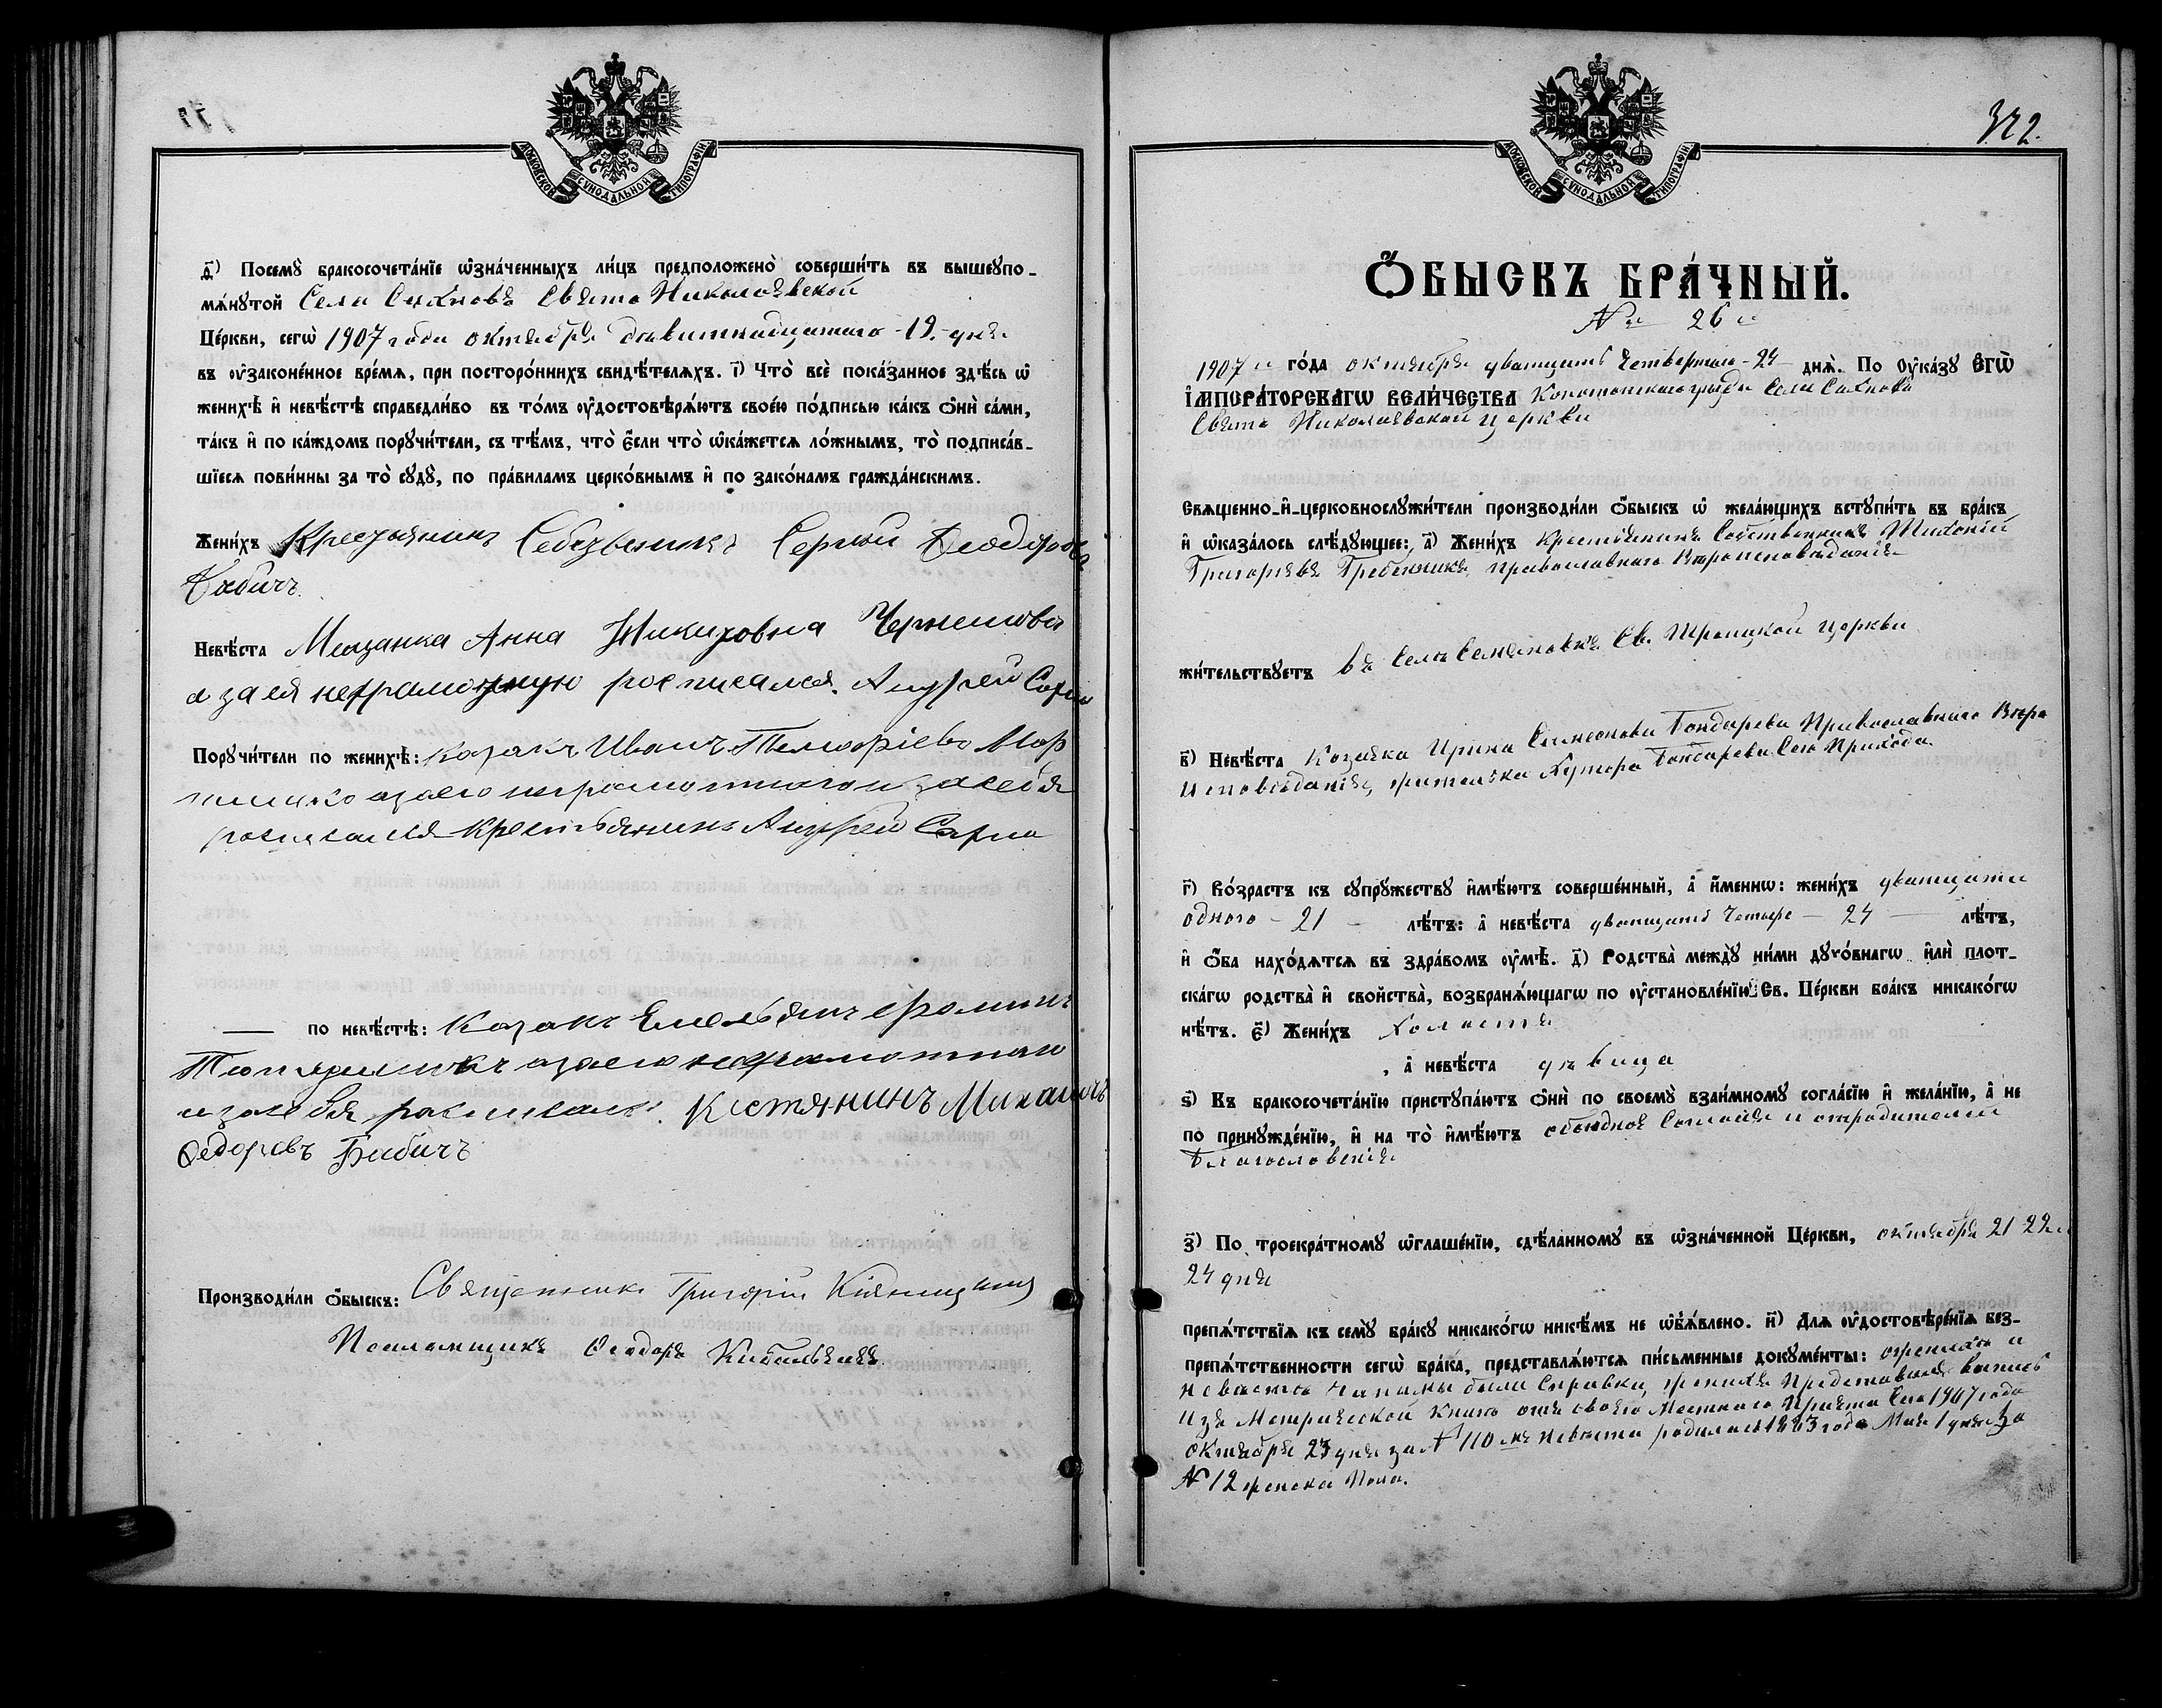 МОСКОВСКОЙ СѴНОДАЛЬНОЙ ТИПОГРАФІИ
ѳ҃) Посемꙋ̀ бракосочета́нїе ѡ҆зна́ченныхъ ли́цъ предположено̀ соверши́ть въ вышеꙋпо-
мѧ́нꙋтой Села Сахновъ Свято Николаевской
Це́ркви, сегѡ̀ 1907 года октября девятнадцатого - 19 - дня
въ ᲂу҆зако́ненное вре́мѧ, при посторо́ннихъ свидѣ́телѧхъ. і҃) Что̀ всѐ пока́занное здѣ́сь ѡ҆
женихѣ̀ и҆ невѣ́стѣ справедли́во въ то́мъ ᲂу҆достовѣрѧ́ютъ свое́ю по́дписью ка́къ ѻ҆нѝ са́ми,
та́къ и҆ по ка́ждомъ порꙋчи́тели, съ тѣ́мъ, что̀ є҆́сли что̀ ѡ҆ка́жетсѧ ло́жнымъ, то̀ подписа́в-
шїесѧ пови́нны за то̀ сꙋдꙋ̀, по пра́виламъ церко́внымъ и҆ по зако́намъ гражда́нскимъ.
Жени́хъ Крестьянинъ Собственникъ Сергей Феодоровъ
Бабичъ.
Невѣ́ста Мещанка Анна Никитовна
а за ея неграмотную росписался Андрей
Порꙋчи́тели по женихѣ̀: казакъ Иванъ Тимофіевъ
а за его неграмотного и за себя
росписался Крестьянинъ Андрей
— по невѣ́стѣ: Казакъ Емельянъ Фоминъ
а за его неграмотного
и за себя росписался Крстянинъ Михаилъ
Федоревъ Бабичъ
Производи́ли ѻ҆́быскъ: Священникъ Григорій
Псаломщикъ Феодоръ
МОСКОВСКОЙ СѴНОДАЛЬНОЙ ТИПОГРАФІИ
322.
Ѻ҆́БЫСКЪ БРА́ЧНЫЙ.
№ 26
1907 го́да октября двадцать четвертого - 24 - днѧ̀. По Оу҆ка́зꙋ ЕГѠ̀
І҆МПЕРА́ТОРСКАГѠ ВЕЛИ́ЧЕСТВА Конотопского уезда Села Сахновъ
Свято Николаевской церкви
Свѧще́нно-и҆-церковнослꙋжи́тели производи́ли ѻ҆́быскъ ѡ҆ жела́ющихъ встꙋпи́ть въ бра́къ
и҆ ѡ҆каза́лось слѣ́дꙋющее: а҃) Жени́хъ Крестьянинъ Собственникъ
Григорьевъ Гребенникъ, православного Вероисповеданія
жи́тельствꙋетъ въ Селе Семяновке Св. Троицкой церкви
в҃) Невѣ́ста Козачка Ирина Симеонова Бондарева Православного Веро
исповеданія, жителька Хутора Бондарева Сего Прихода
г҃) Во́зрастъ къ сꙋпрꙋ́жествꙋ и҆мѣ́ютъ соверше́нный, а҆ и҆́меннѡ: жени́хъ двадцати
одного - 21 - лѣ́тъ: а҆ невѣ́ста двадцать четыре - 24 - лѣ́тъ,
и҆ ѻ҆́ба нахо́дѧтсѧ въ здра́вомъ ᲂу҆мѣ̀. д҃) Родства̀ междꙋ̀ ни́ми дꙋхо́внагѡ и҆лѝ плот-
ска́гѡ родства̀ и҆ сво́йства̀, возбранѧ́ющагѡ по ᲂу҆становле́нїю Св. Це́ркви бра́къ никако́гѡ
нѣ́тъ. є҃) Жени́хъ Холостъ
, а҆ невѣ́ста девица
ѕ҃) Къ бракосочета́нїю пристꙋпа́ютъ ѻ҆нѝ по своемꙋ̀ взаи́мномꙋ согла́сїю и҆ жела́нїю, а҆ не
по принꙋжде́нїю, и҆ на то̀ и҆мѣ́ютъ обоюдное Согласія и от родителей
Благословенія
з҃) По троекра́тномꙋ ѡ҆глаше́нїю, сдѣ́ланномꙋ въ ѡ҆зна́ченной Це́ркви, октября 21 22 и
24 дня
препѧ́тствїѧ къ семꙋ̀ бра́кꙋ никако́гѡ нике́мъ не ѡ҆б̾ѧ́влено. и҃) Длѧ ᲂу҆достовѣре́нїѧ без-
препѧ́тственности сегѡ̀ бра́ка, представлѧ́ютсѧ пи́сьменные докꙋме́нты: о женихе и
невесте нами были Справки, жених Представил выпись
изъ Метрической Книги отъ своего Местного Причта Сего 1907 года
октября 23 дня за № 110 мъ невеста родилась 1883 года Мая 1 дня За
№ 12 женска Пола.